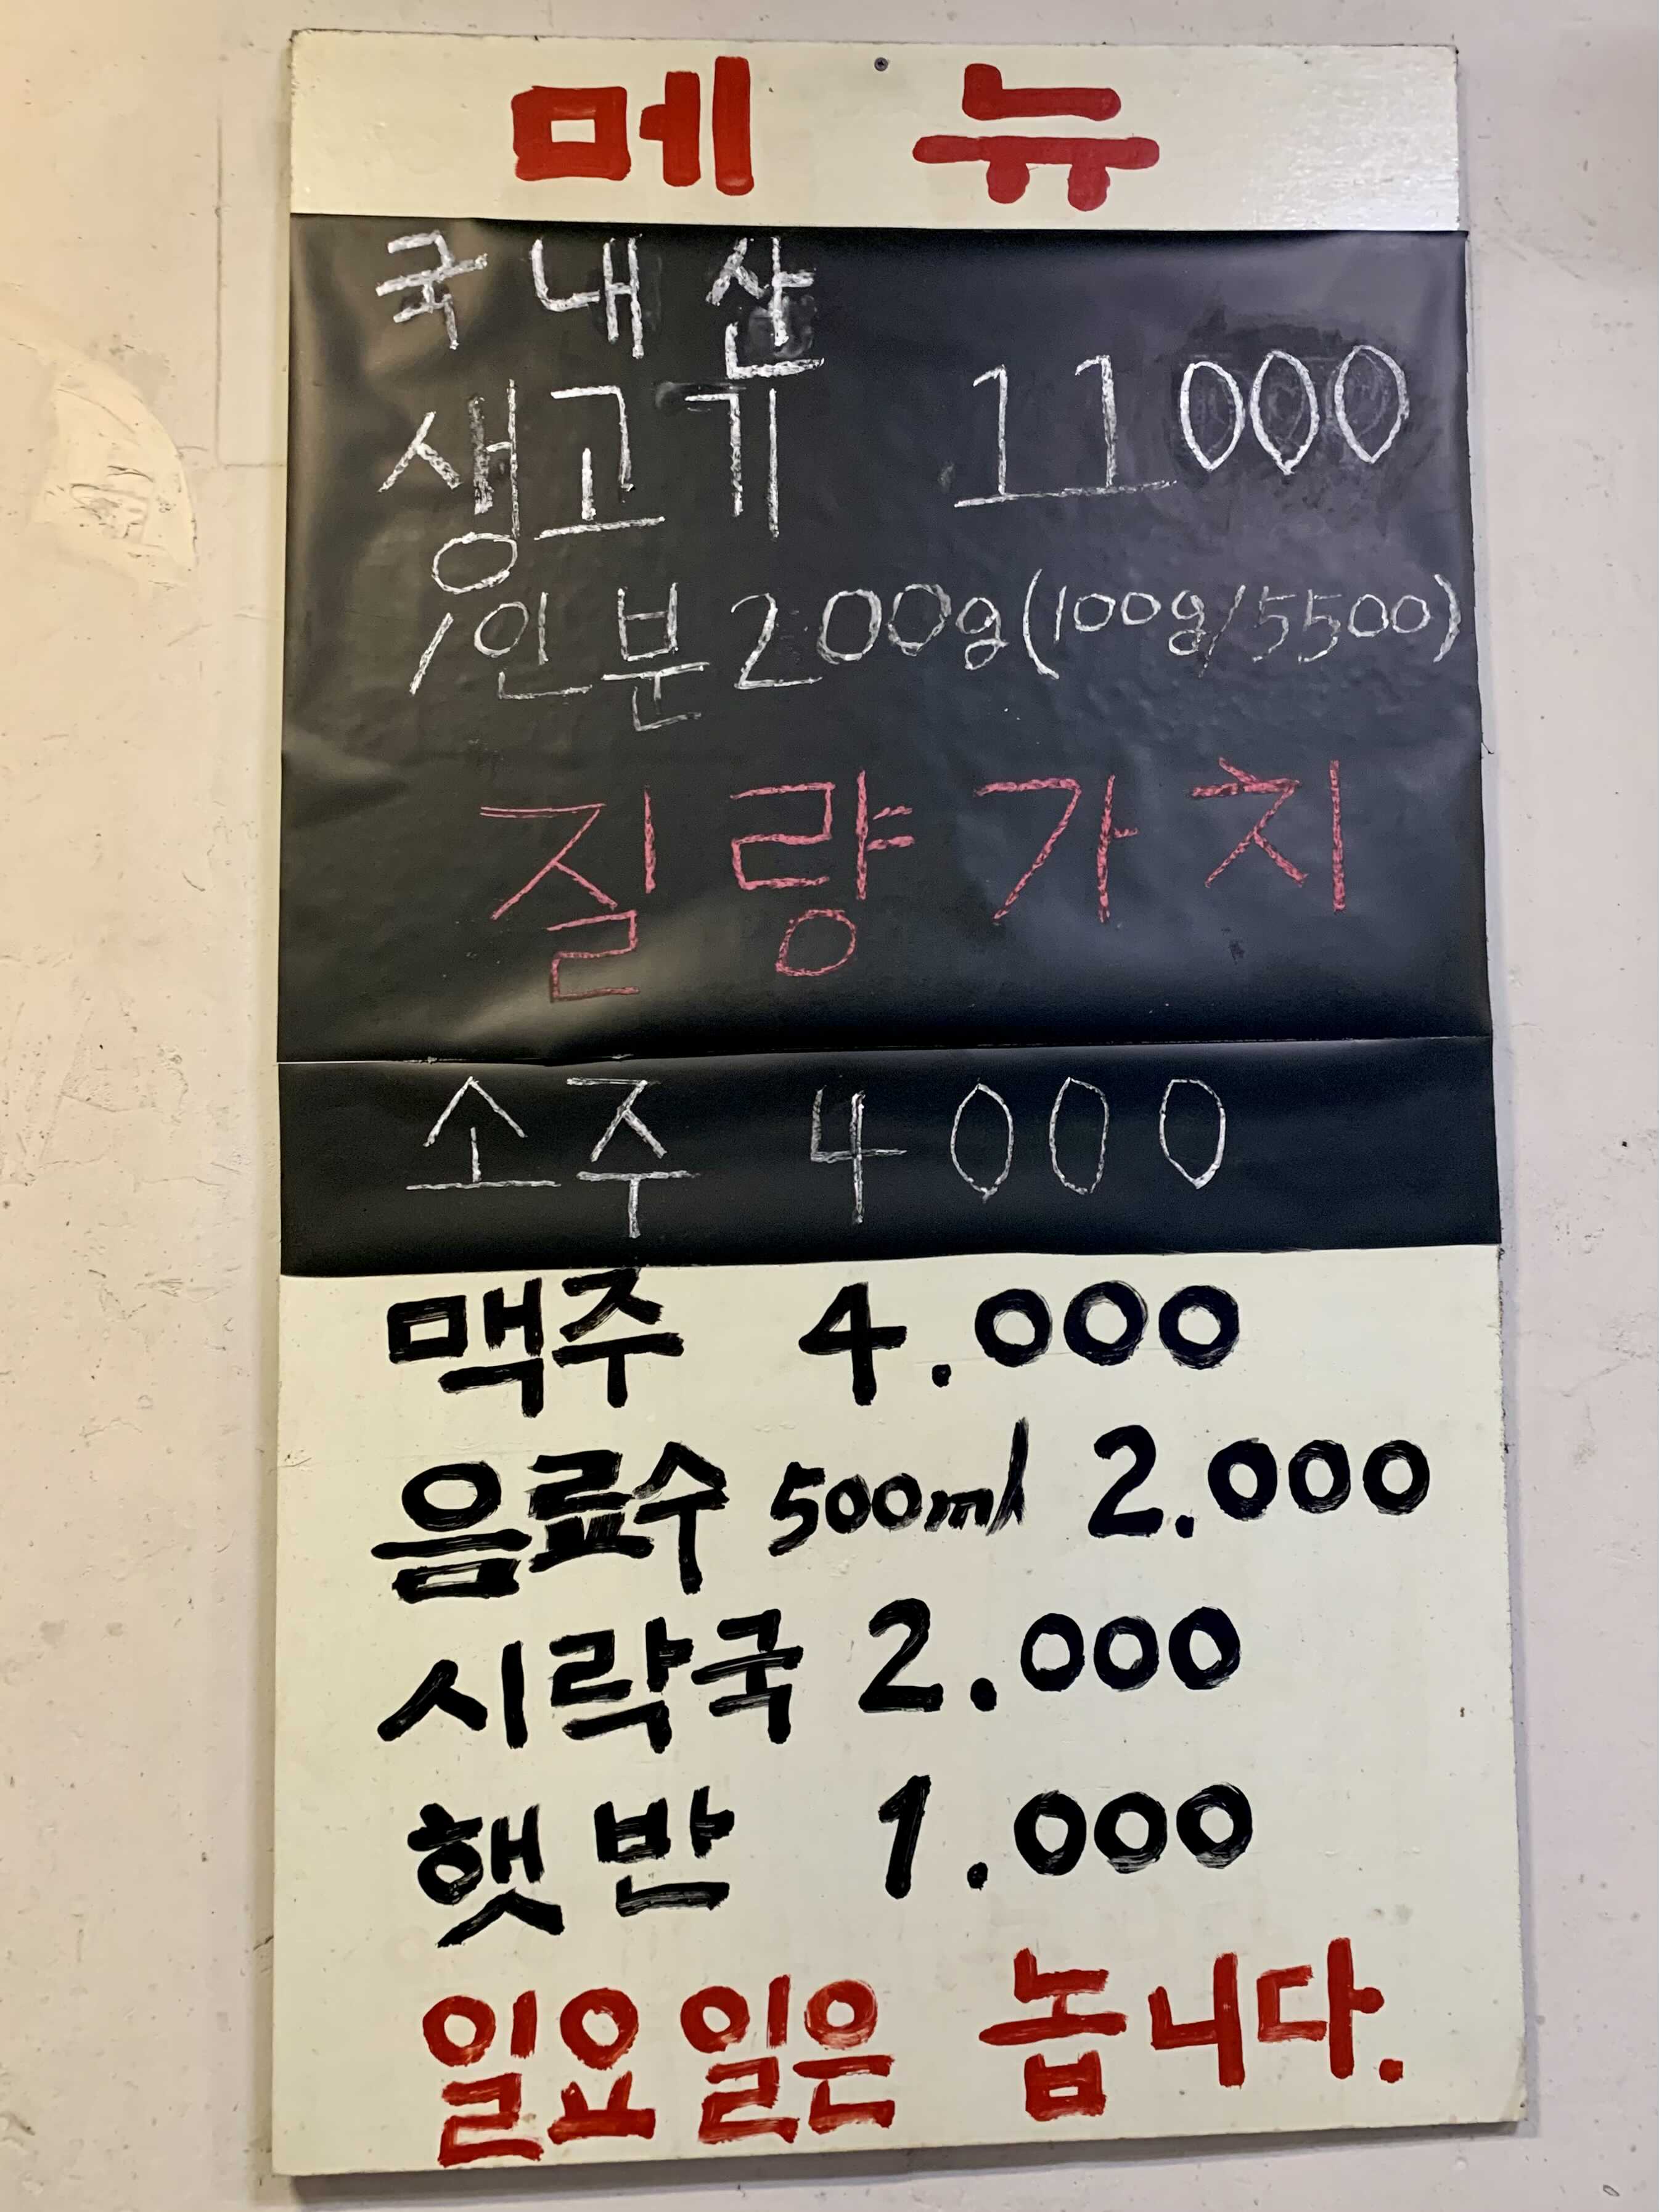 메 뉴
국내산
생고기 11000
1인분 200g(100g/5500)
질량가치
소주 4000
맥주 4.000
음료수 500ml 2.000
시락국 2.000
햇반 1.000
일요일은 놉니다.